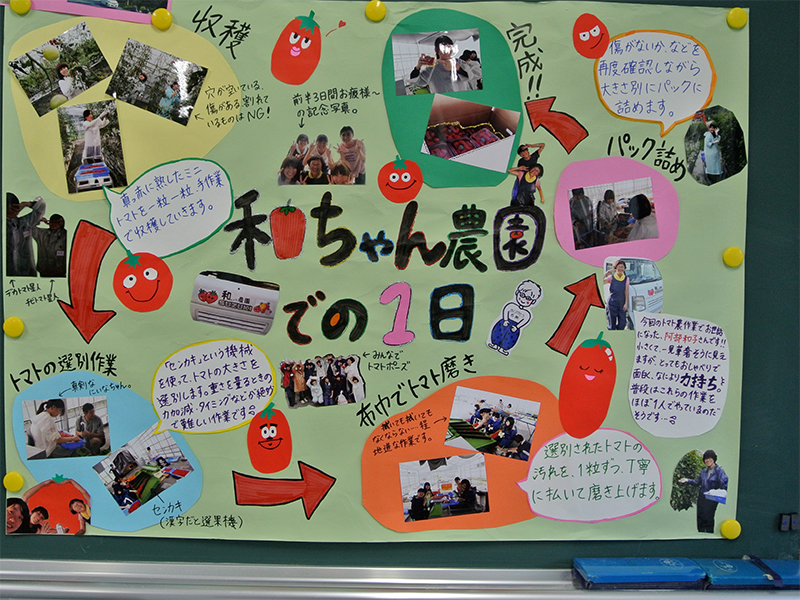 収穫
穴が空いている、
傷がある、割れて
いるものはNG!
真っ赤に熟したミニ
トマトを一粒一粒、手作業
で収穫していきます。
前半3日間お疲様〜
の記念写真。
完成!!
傷がないか、などを
再度確認しながら
大きさ別にパックに
詰めます。
パック詰め
和ちゃん農園
での1日
トマトの選別作業
真剣な
にいなちゃん。
「センカキ」という機械
を使って、トマトの大きさを
選別します。重さを量るときの
力加減・タイミングなどが絶妙
で難しい作業です
センカキ
(漢字だと選果機)
←みんなで
トマトポーズ
布巾でトマト磨き
拭いても拭いても
なくならない…程
地道な作業です。
選別されたトマトの
汚れを、1粒ずつ、丁寧
に払いて磨き上げます。
今回のトマト農作業でお世話
になった、阿部和子さんです!!
小さくて、一見華奢そうに見え
ますが、とってもおしゃべりで
面白く、なにより力持ち♪
普段はこれらの作業を
ほぼ1人でやっているのだ
そうです…